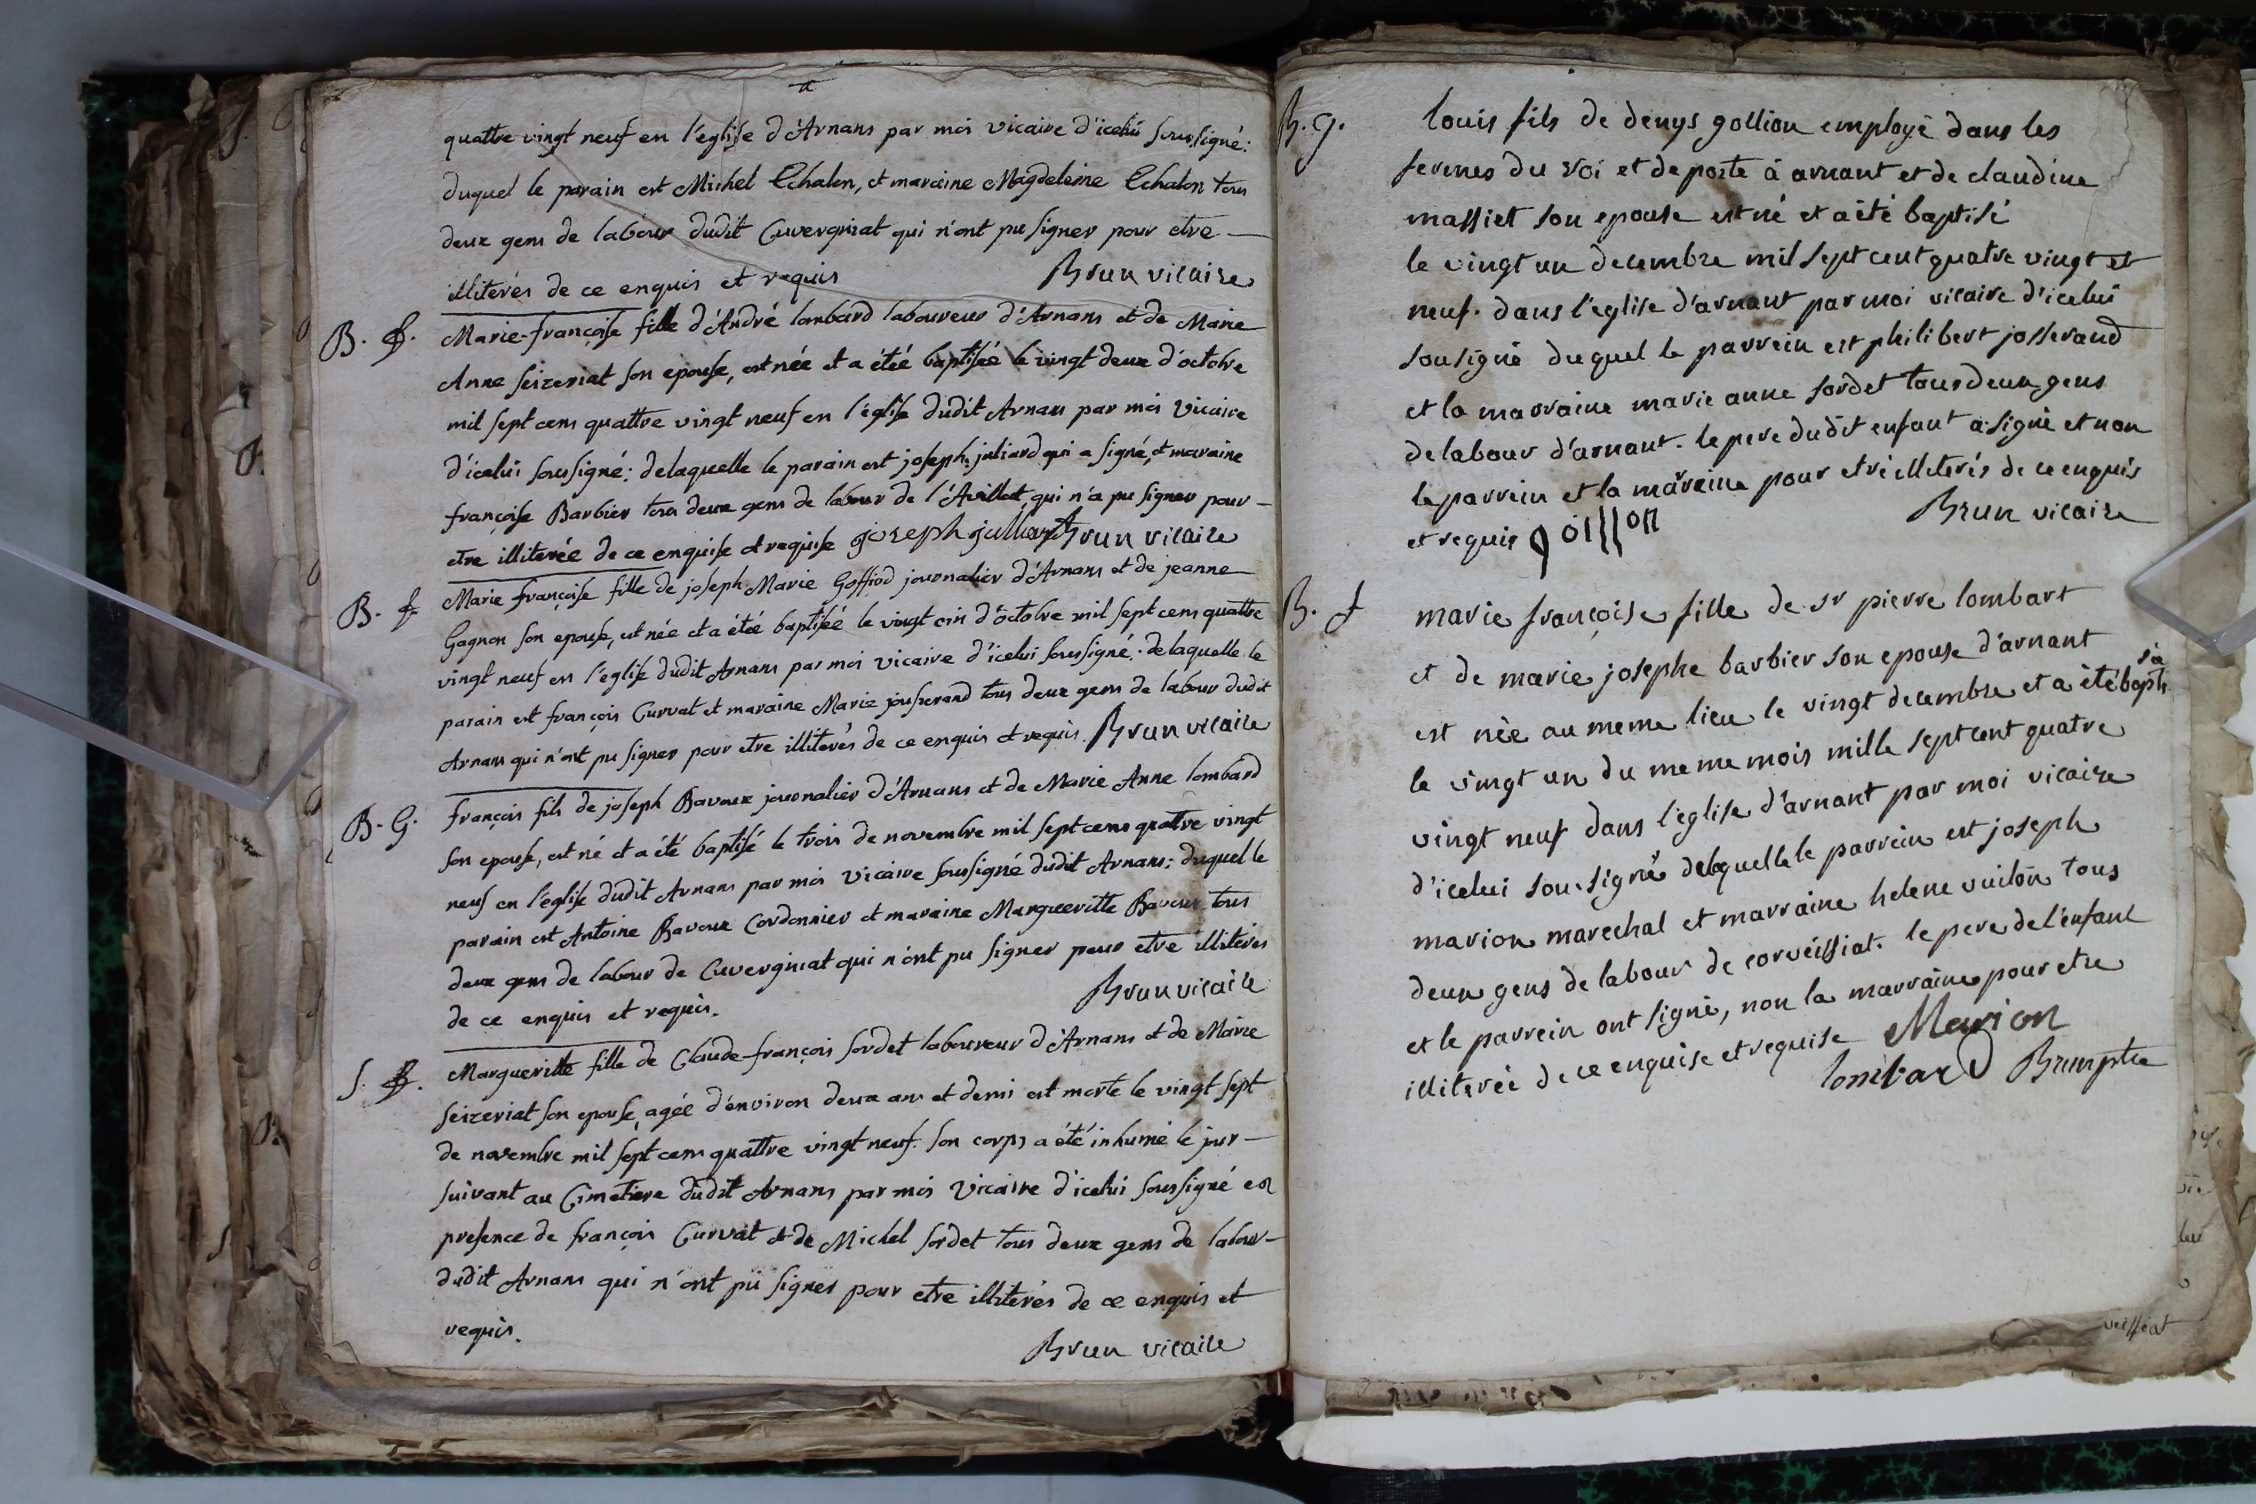 quattre vingt neuf en l'église d'Arnans par moi vicaire d'icelui soussigné:
duquel le parain est Michel Echalon, et maraine Magdeleine Echalon tous
deux gens de labour dudit Cuvergniat qui n'ont pu signer pour etre
illiterés de ce enquis et requis Brun vicaire
B. f. Marie-françoise fille d'André lombard laboureur d'Arnans et de Marie
Anne seizeriat son epouse, est née et a étéé baptiséé le vingt deux d'octobre
mil sept cens quattre vingt neuf en l'église dudit Arnans par moi vicaire
d'icelui soussigné: delaquelle le parain est joseph juliard qui a signé, et maraine
françoise Barbier tous deux gens de labour de l'Avillat, qui n'a pu signer pour
etre illiterée de ce enquise et requise joseph julliard Brun vicaire
B. f. Marie françoise fille de joseph Marie Goffiod journalier d'Arnans et de jeanne
Gagnon son epouse, est née et a étéé baptiséé le vingt cin d'octobre mil sept cens quattre
vingt neuf en l'église dudit Arnans par moi vicaire d'icelui soussigné: delaquelle le
parain est françois Curvat et maraine Marie jousserand tous deux gens de labour dudit
Arnans qui n'ont pu signer pour etre illiterés de ce enquis et requis. Brun vicaire
B. G. françois fils de joseph Bavoux journalier d'Arnans et de Marie Anne lombard
son epouse, est né et a été baptisé le trois de novembre mil sept cens quatre vingt
neuf en l'église dudit Arnans par moi vicaire soussigné dudit Arnans: duquel le
parain est Antoine Bavoux Cordonnier et maraine Margueritte Bavoux tous
deux gens de labour de Cuvergniat qui n'ont pu signer pour etre illiterés
de ce enquis et requis. Brun vicaire
S. f. Margueritte fille de Claude-françois sordet laboureur d'Arnans et de Marie
seizeriat son epouse, agée d'environ deux ans et demi est morte le vingt sept
de novembre mil sept cens quattre vingt neuf. son corps a été inhumé le jour
suivant au Cimetiere dudit Arnans par moi vicaire d'icelui soussigné en
presence de françois Curvat et de Michel sordet tous deux gens de labour
dudit Arnans qui n'ont pu signer pour etre illiterés de ce enquis et
requis.
Brun vicaire
B. g. louis fils de denys gollion employé dans les
fermes du roi et de poste à arnant et de claudine
massiet son epouse est né et a été baptisé
le vingt un decembre mil sept cent quatre vingt et
neuf. dans l'eglise d'arnant par moi vicaire d'icelui
sousigné duquel le parrein est philibert josserand
et la marraine marie anne sordet tous deux gens
de labour d'arnant. le pere dudit enfant a signé et non
le parrein et la marreine pour etre illiterés de ce enquis
et requis goillon Brun vicaire
B. f marie françoise fille de sr pierre lombart
et de marie josephe barbier son epouse d'arnant
est née au meme lieu le vingt decembre et a été bapti
séé
le vingt un du meme mois mille sept cent quatre
vingt neuf dans l'eglise d'arnant par moi vicaire
d'icelui sousigné delaquelle le parrein est joseph
marion marechal et marraine helene vuiton tous
deux gens de labour de corveissiat. le pere de l'enfant
et le parrein ont signé, non la marraine pour etre
illiterée de ce enquise et requise Marion
lombard Brun ptre
veissiat